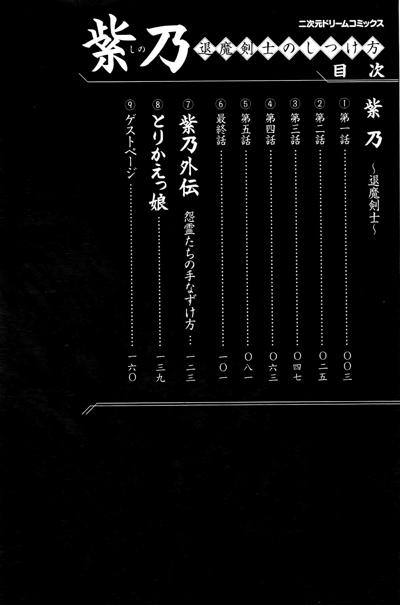 二次元ドリームコミックス
紫乃
しの
退魔剣士のしつけ方
目次
紫乃 ～退魔剣士～
① 第一話…………〇〇三
② 第二話…………〇二五
③ 第三話…………〇四七
④ 第四話…………〇六三
⑤ 第五話…………〇八一
⑥ 最終話…………一〇一
⑦ 紫乃外伝 怨霊たちの手なずけ方…一二三
⑧ とりかえっ娘…………一三九
⑨ ゲストページ…………一六〇